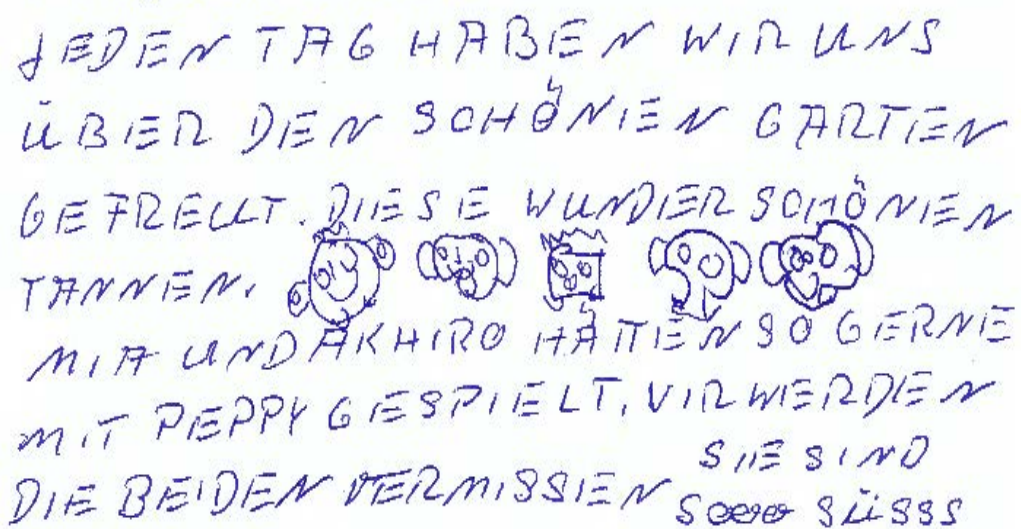 JEDEN TAG HABEN WIR UNS
ÜBER DEN SCHÖNEN GARTEN
GEFREUT. DIESE WUNDERSCHÖNEN
TANNEN.
MIA UND AKHIRO HÄTTEN SO GERNE
MIT PEPPY GESPIELT. VIR WERDEN
DIE BEIDEN VERMISSEN SIE SIND
Soooo SÜSSS